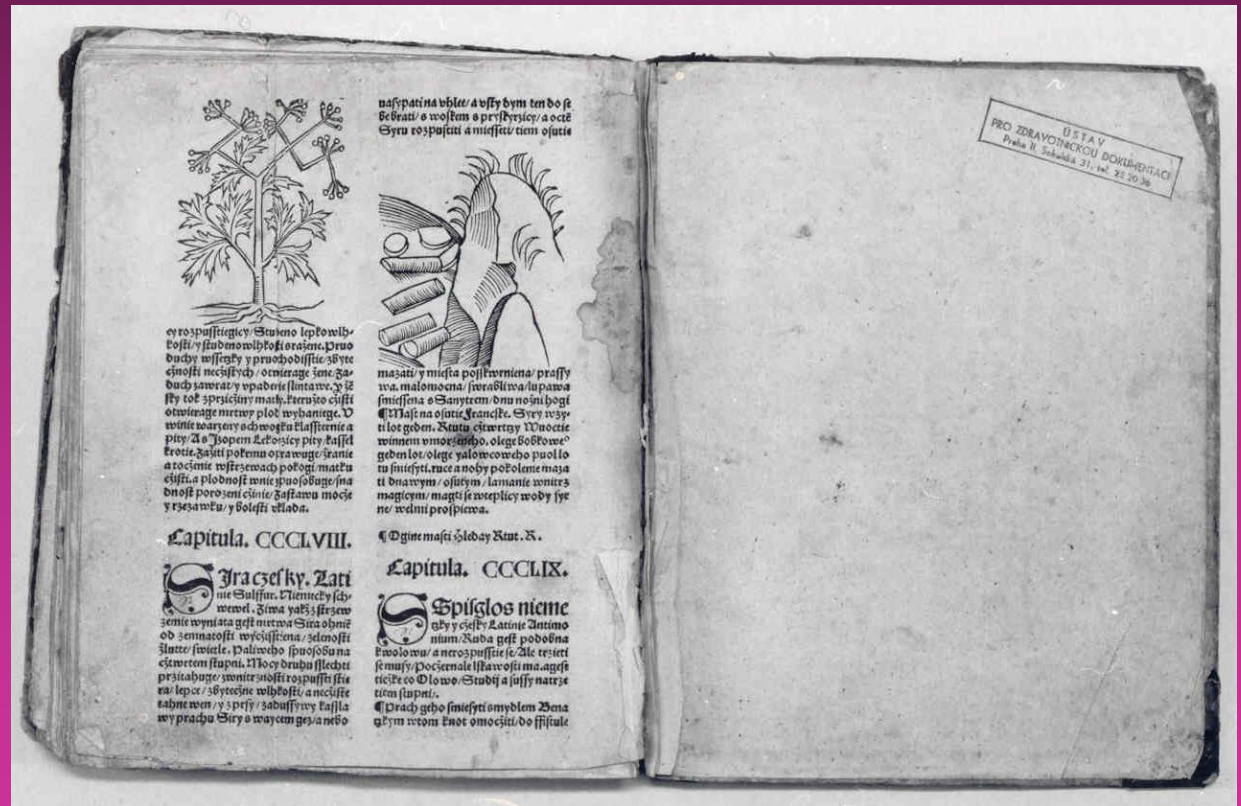 cy rozpusstiegicy/Studeno lepkowlh-
kosti/y studenowlhkosti sražene. Pruo
duchy wssetzky y pruochodisstie/zbyte
cžnosti necžistych/otwierage žene/Za-
duch zawrat/y vpadenie slintawe. 
sky tok zprzicžiny matky. kteružto cžisti
otwierage mrtwy plod wyhaniege. V
winie warzeny sch wosku klassternie a
pity/A s Jzopem Lekorzicy pity kassel
krotie. Zažiti pokrmu oprawuge/žranie
a tocženie wstrzewach pokogi/matku
cžisti. a plodnost wnie spuosobuge/sna
dnost porozeni cžinie/Zastawu mocže
y rzezawku/y bolesti vklada.
Capitula. CCCLVIII.
SJra czesky. Lati
nie Sulffur. Niemecky sch-
wewel. Ziwa yakž z strzew
zemie wyniata gest mrtwa Sira ohnie
od zemnatosti wycžisstiena/zelenosti
žlutte/swietle. Paliweho spuosobu na
cžtwrtem stupni. Mocy druhu sslechti
przitahuge/zwnitrznosti rozpussti stie
ra/lepce/zbytecžne wlhkosti/a necžiste
tahne wen/y z prsy/zadussywy kassla
wy prachu Siry s waycem gez/a nebo
nasypati na vhlee/a vsty dym ten do se
be brati/s woskem s pryskyrzicy/a octe
Syru rozpustiti a miesseti/tiem osutie
mazati/y miesta posskwrniena/prassy
wa. malomocna/swrabliwa/lupawa
smiessena s Sanytrem/dnu nožni hogi
¶Mast na osutie Francske. Syry wzy-
ti lot geden. Rtutu cžtwrtzy Wuoctie
winnem vmorzeneho, olege bobkoweº
geden lot/olege yalowcoweho puol lo
tu smiesyti. ruce a nohy po kolene maza
ti dnawym/osutym/lamanie wnitrz
magicym/magti se wteplicy wody syr
ne/welmi prospiewa.
¶Ogine masti hleday Rtut. R.
Capitula. CCCLIX.
SSpisglos nieme
tzky y cžesky Latinie Antimo
nium/Ruda gest podobna
k wolowu/a nerozpustie se/Ale trzieti
se musy/Pocžernale lskawosti ma. a gest
tiežke co Olowo/Studij a sussy na trze
tiem stupni/.
¶Prach geho smiesyti s mydlem Bena
tzkym wtom knot omocžiti/do ffistule
ÚSTAV
PRO ZDRAVOTNICKOU DOKUMENTACI
Praha II, Sokolská 31, tel. 23 20 36